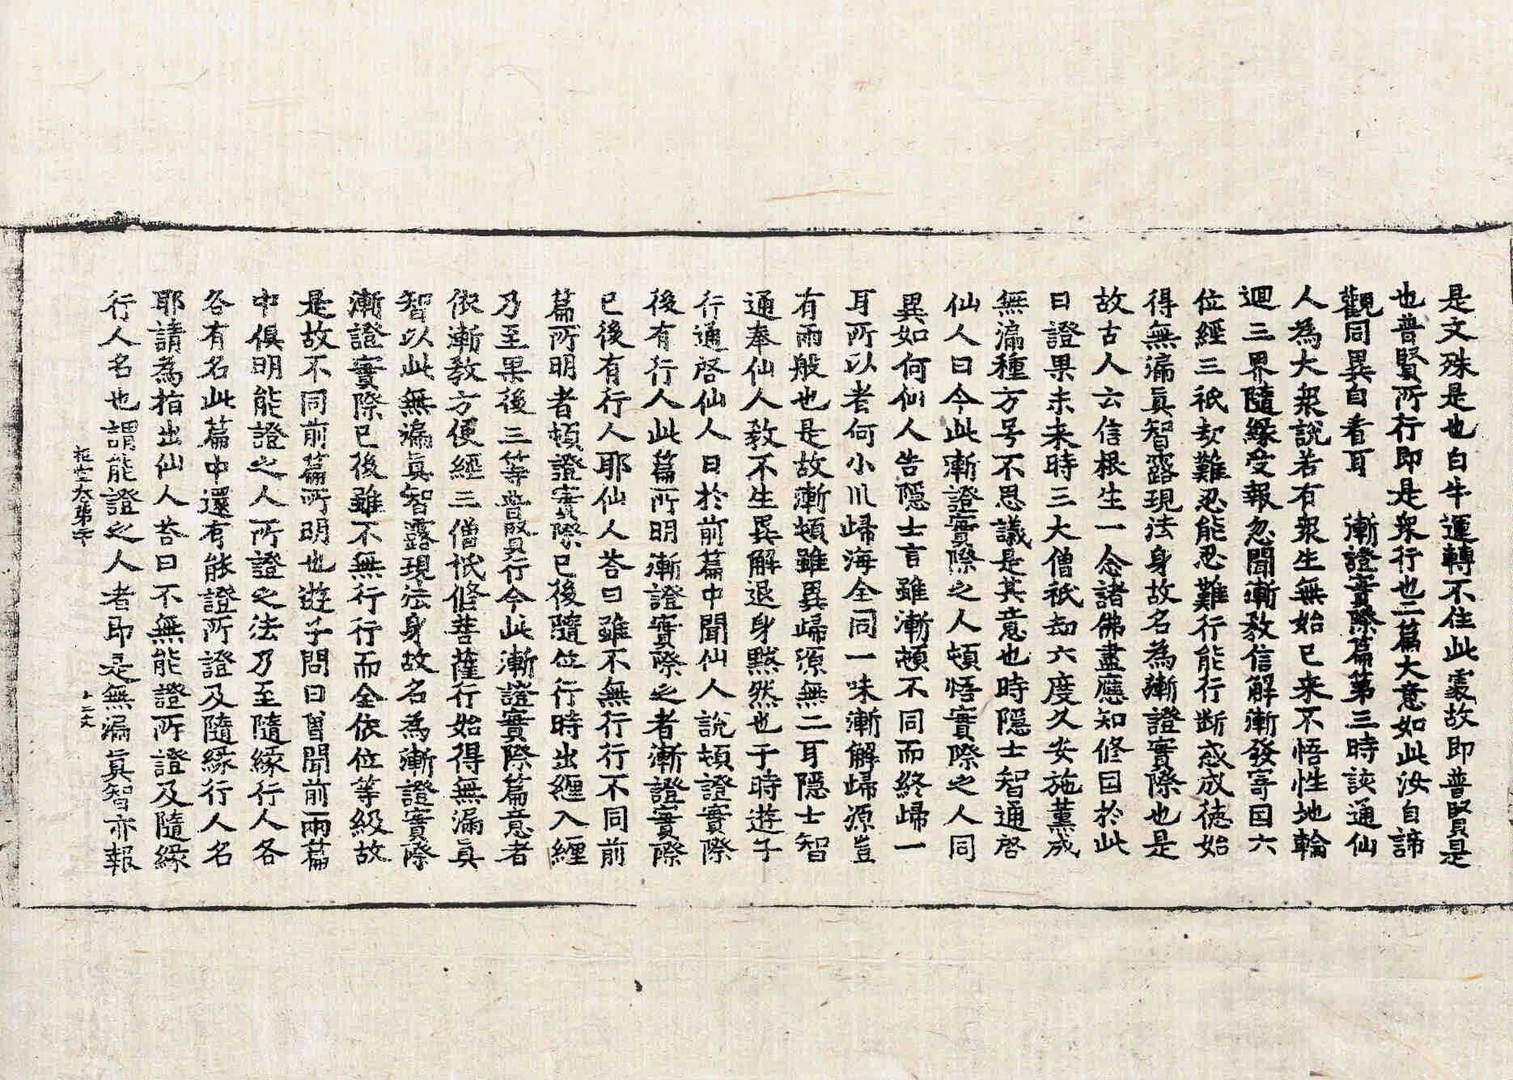 是文殊是也白牛運轉不住此處故即普賢是
也普賢所行即是衆行也二篇大意如此汝自諦
觀同異自看耳　漸證實際篇第三時該通仙
人為大衆說若有衆生無始已来不悟性地輪
迴三界隨緣受報忽聞漸教信解漸發寄因六
位經三祇劫難忍能忍難行能行断惑成徳始
得無漏真智露現法身故名為漸證實際也是
故古人云信根生一念諸佛盡應知修因於此
日證果未来時三大僧祇劫六度久安施薰成
無漏種方号不思議是其意也時隠士智通啓
仙人曰今此漸證實際之人頓悟實際之人同
異如何仙人告隠士言雖漸頓不同而終歸一
耳所以者何小川歸海全同一味漸解歸源豈
有兩般也是故漸頓雖異歸源無二耳隠士智
通奉仙人教不生異解退身黙然也于時遊子
行通啓仙人曰於前篇中聞仙人說頓證實際
後有行人此篇所明漸證實際之者漸證實際
已後有行人耶仙人荅曰雖不無行行不同前
篇所明者頓證實際已後隨位行時出纏入纏
乃至果後三等普賢行今此漸證實際篇意者
依漸教方便經三僧祇修菩薩行始得無漏真
智以此無漏真智露現法身故名為漸證實際
漸證實際已後雖不無行行而全依位等級故
是故不同前篇所明也遊子問曰曽聞前兩篇
中俱明能證之人所證之法乃至隨緣行人各
各有名此篇中還有能證所證及隨緣行人名
耶請為指出仙人荅曰不無能證所證及隨緣
行人名也謂能證之人者即是無漏真智亦報